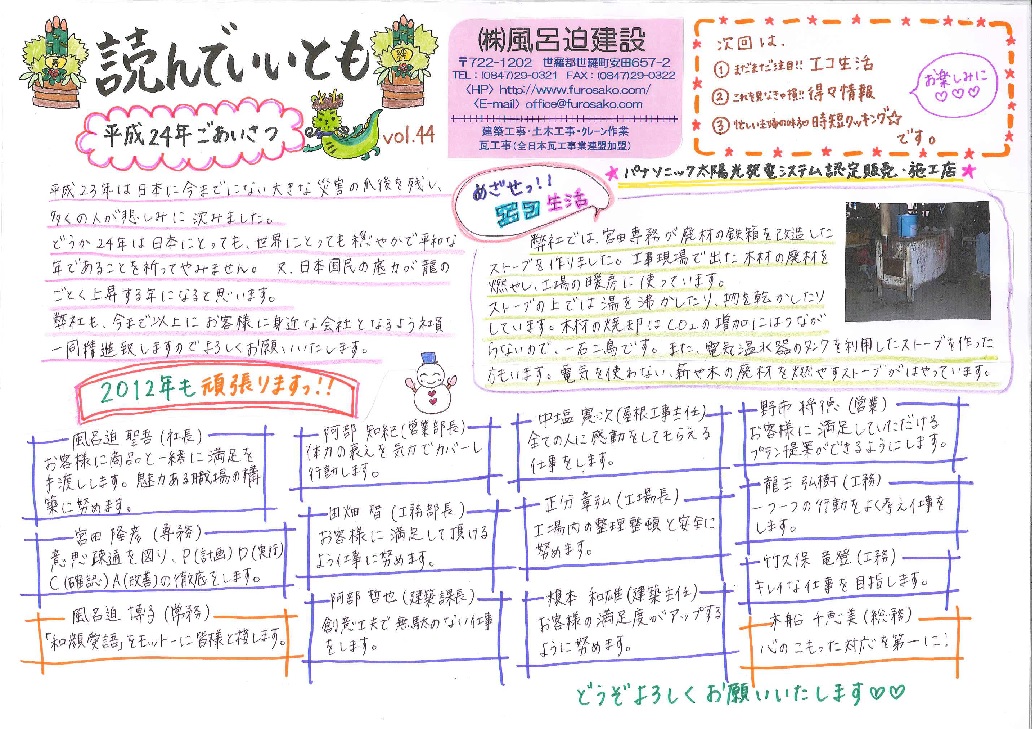 読んでいいとも
平成24年ごあいさつ
vol.44
㈱風呂迫建設
〒722-1202 世羅郡世羅町安田657-2
TEL：(0847)29-0321 FAX：(0847)29-0322
〈HP〉http://www.furosako.com/
〈E-mail〉office@furosako.com
建築工事・土木工事・クレーン作業
瓦工事(全日本瓦工事業連盟加盟)
次回は、
①まだまだ注目!! エコ生活
②これを見なきゃ損!! 得々情報
③忙しい主婦の味方 時短クッキング☆
です。
お楽しみに
♡♡♡
★パナソニック太陽光発電システム認定販売・施工店★
平成23年は日本に今までにない大きな災害の爪後を残し、
多くの人が悲しみに沈みました。
どうか24年は日本にとっても、世界にとっても穏やかで平和な
年であることを祈ってやみません。又、日本国民の底力が龍の
ごとく上昇する年になると思います。
弊社も、今まで以上にお客様に身近な会社となるよう社員
一同精進致しますのでよろしくお願いいたします。
めざせっ!!
エコ生活
弊社では、宮田専務が廃材の鉄箱を改造した
ストーブを作りました。工事現場で出た木材の廃材を
燃やし、工場の暖房に使っています。
ストーブの上では湯を沸かしたり、物を乾かしたり
しています。木材の焼却はCO₂の増加にはつなが
らないので、一石二鳥です。また、電気温水器のタンクを利用したストーブを作った
方もいます。電気を使わない、薪や木の廃材を燃やすストーブがはやっています。
2012年も頑張りますっ!!
風呂迫 聖吾(社長)
お客様に商品と一緒に満足を
手渡しします。魅力ある職場の構
築に努めます。
宮田 隆彦(専務)
意思疎通を図り、P(計画)D(実行)
C(確認)A(改善)の徹底をします。
風呂迫 博子(常務)
「和顔愛語」をモットーに皆様と接します。
阿部 知紀(営業部長)
体力の衰えを気力でカバーし
行動します。
田畑 智(工務部長)
お客様に満足して頂ける
よう仕事に努めます。
阿部 哲也(建築課長)
創意工夫で無駄のない仕事
をします。
中塩 憲次(屋根工事主任)
全ての人に感動をしてもらえる
仕事をします。
正分 章弘(工場長)
工場内の整理整頓と安全に
努めます。
根本 和雄(建築主任)
お客様の満足度がアップする
ように努めます。
野市 将徳(営業)
お客様に満足していただける
プラン提案ができるようにします。
龍王 弘樹(工務)
一つ一つの行動をよく考え仕事を
します。
竹久保 竜登(工務)
キレイな仕事を目指します。
木船 千恵美(総務)
心のこもった対応を第一に!
どうぞよろしくお願いいたします♡♡